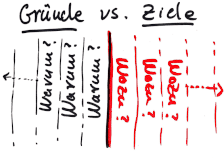 Gründe vs. Ziele
Warum?
Warum?
Warum?
Wozu?
Wozu?
Wozu?